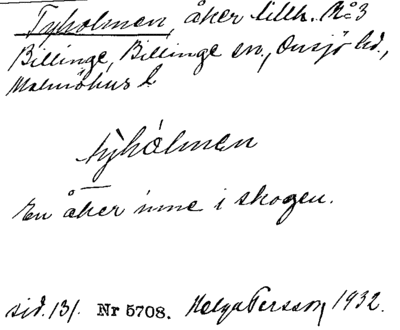 Tyholmen, åker tillh. No 3
Billinge, Billinge sn., Onsjö hd.,
Malmöhus l
tỳhólmen
En åker inne i skogen.
sid. 131. Nr 5708. Helga Persson 1932.